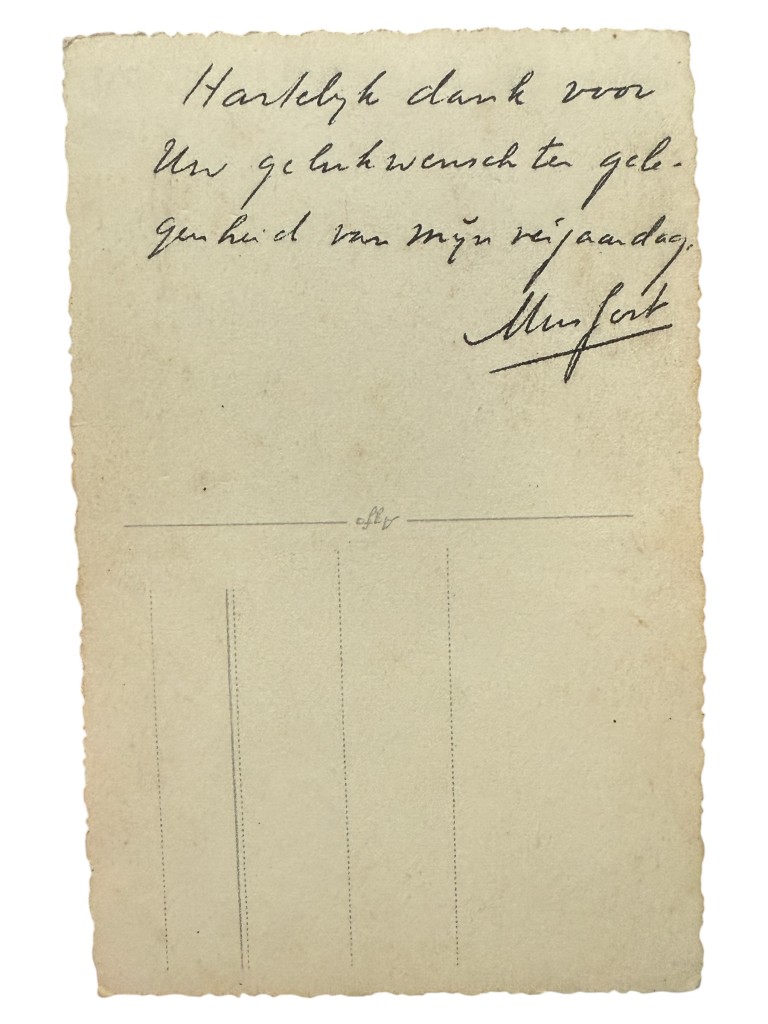 Hartelijk dank voor
Uw gelukwensch ter gele-
genheid van mijn verjaardag.
Agfa